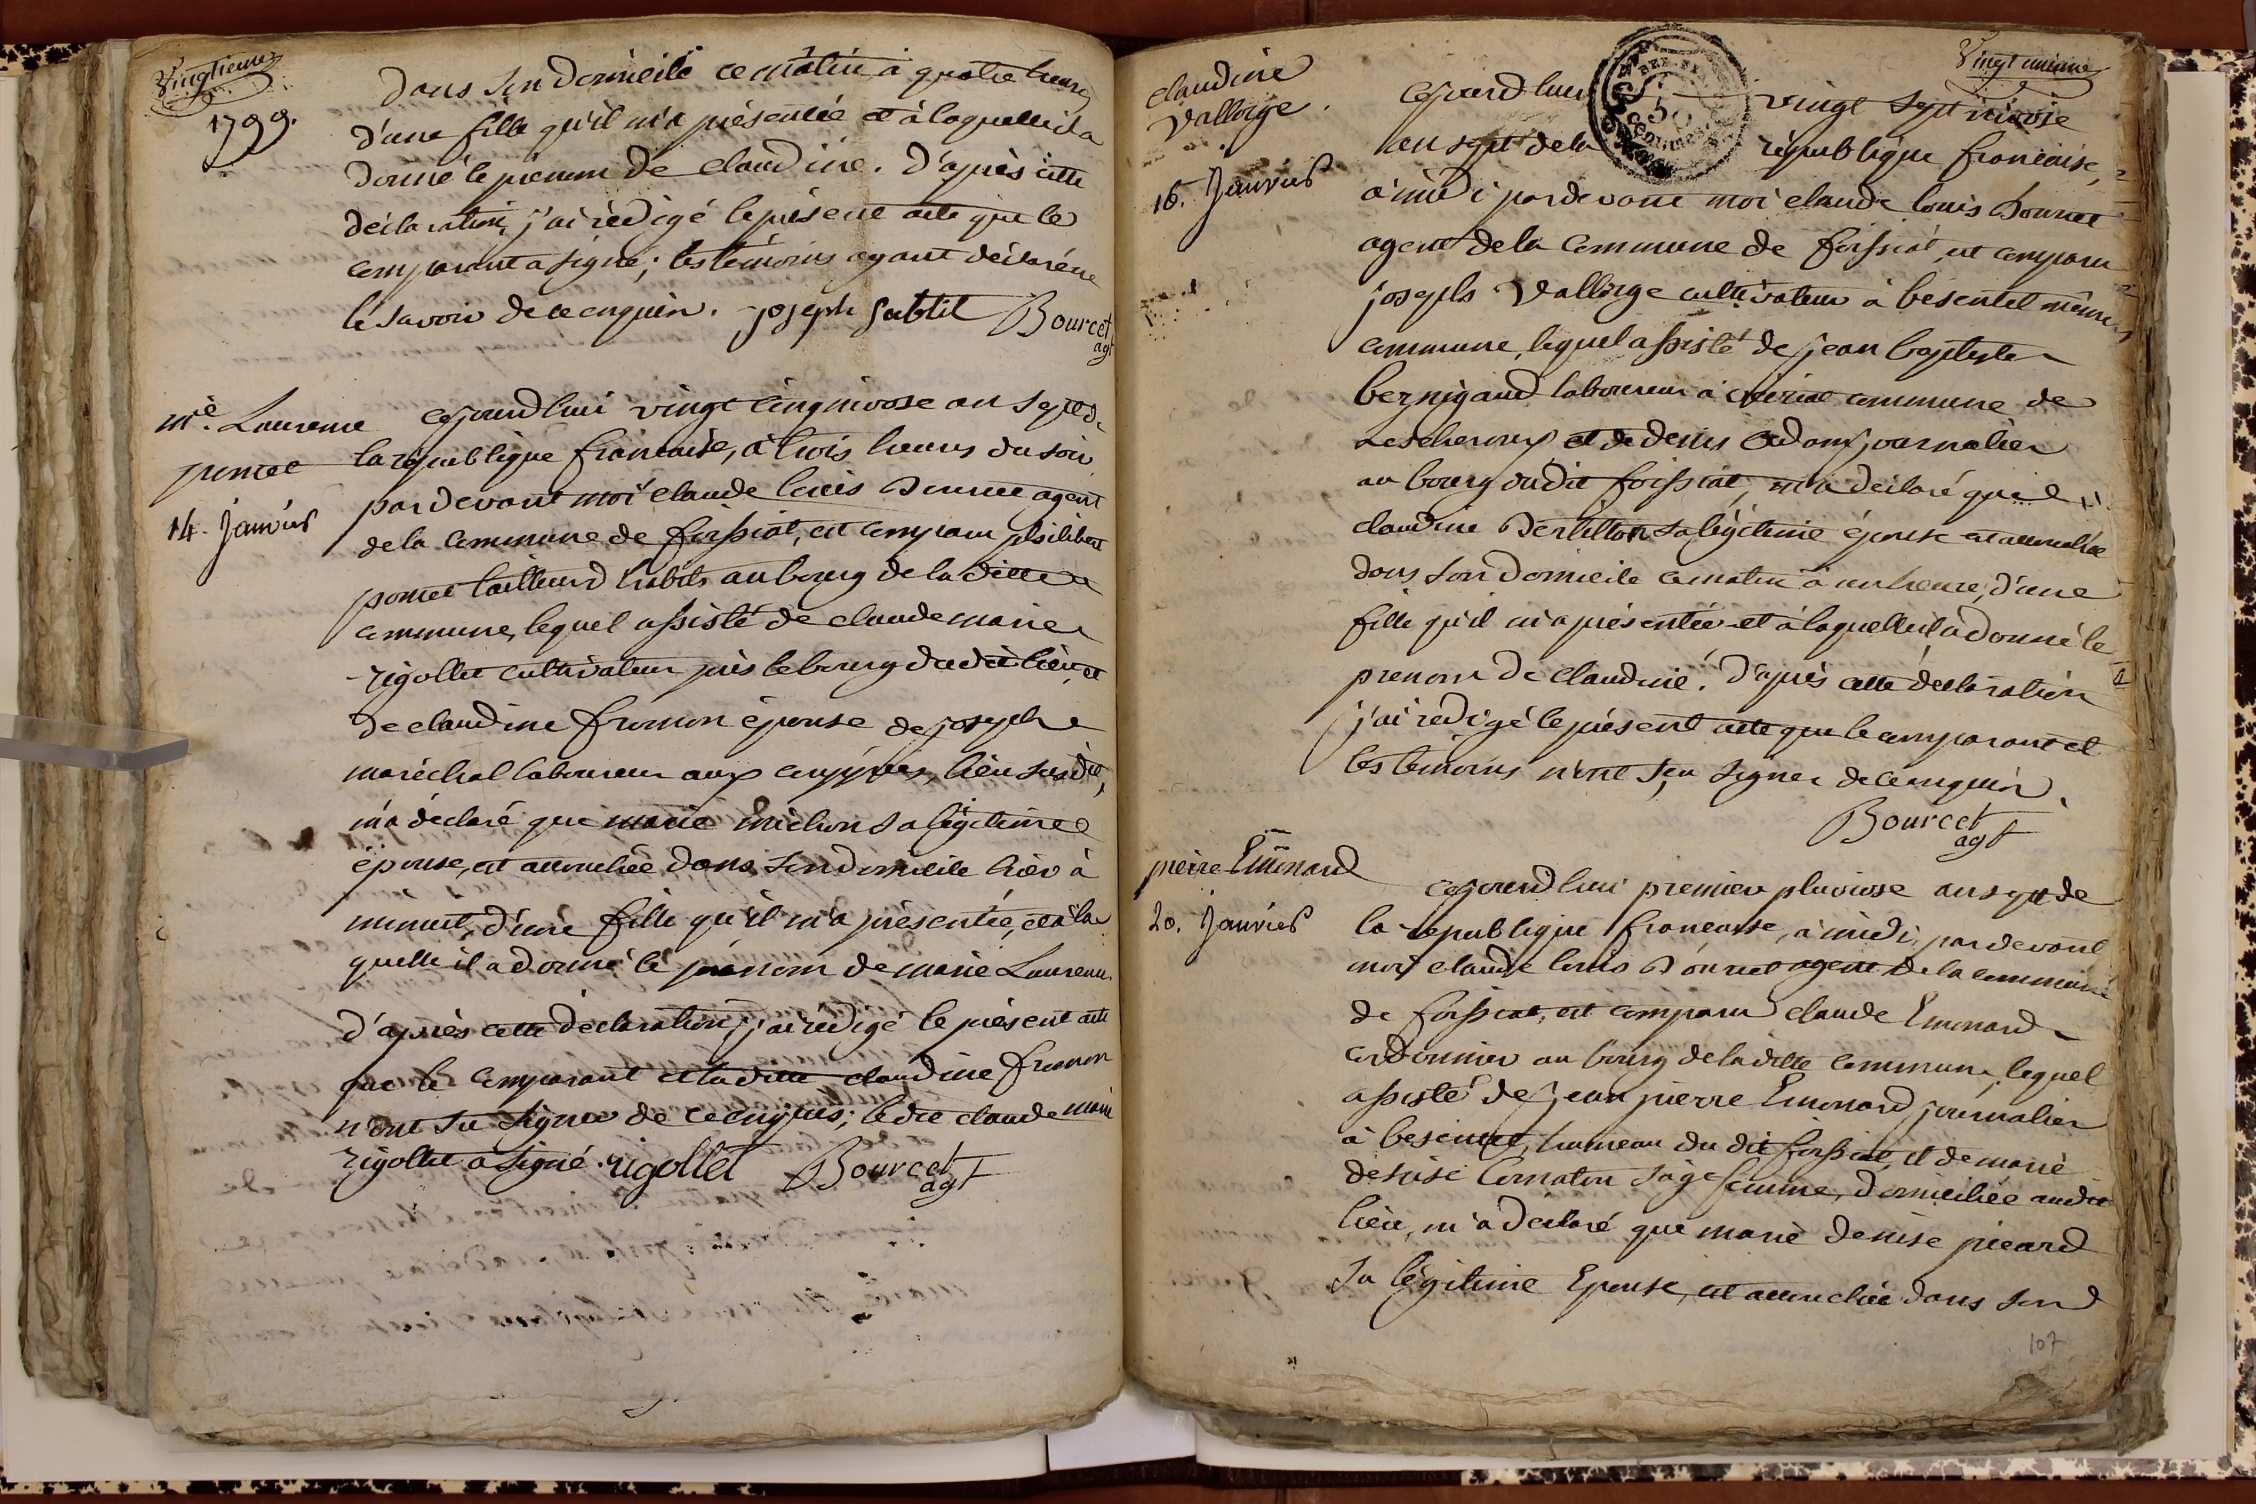 Vingtieme
1799.
dans son domicile ce matin à quatre heures
d'une fille qu'il m'a présentée et à laquelle il a
donné le prenom de claudine. D'après cette
déclaration, j'ai rédigé le présent acte que le
comparant a signé; les témoins ayant déclaré ne
le savoir de ce enquis. joseph subtil Bourcet
agt
mie. Laurence
pomet
14. Janvier
cejourd'hui vingt cinq nivose an sept de
la république française, à trois heures du soir
pardevant moi claude louis Bourcet agent
de la commune de foissiat, est comparu philibert
pomet tailleur d'habits au bourg de la ditte
commune, lequel assisté de claude marie
rigollet cultivateur près le bourg dudit lieu, et
de claudine fromon épouse de joseph
maréchal laboureur aux lieu susdit,
m'a déclaré que marie michon sa légitime
épouse, est accouchée dans son domicile hier à
minuit, d'une fille qu'il m'a présentée, et à la
quelle il a donné le prénom de marie Laurence
d'après cette déclaration, j'ai rédigé le présent acte
que le comparant et la ditte claudine fromon
n'ont su signer de ce enquis; ledit claude marie
rigollet a signé. rigollet Bourcet
agt
Vingt unieme
claudine
Vallorge.
16. Janvier
cejourd'hui vingt sept nivose
an sept de la république francaise,
à midi pardevant moi claude louis Bourcet
agent de la commune de foissiat, est comparu
joseph Vallorge cultivateur à besentet même
commune, lequel assisté de jean baptiste
bernigaud laboureur à commune de
Lescheroux et de denis journalier
au bourg dudit foissiat, m'a déclaré que
claudine sa légitime épouse est accouchée
dans son domicile ce matin à une heure, d'une
fille qu'il m'a présentée et à laquelle il a donné le
prenom de claudine. D'après cette déclaration
j'ai rédigé le présent acte que le comparant et
les témoins n'ont su signer de ce enquis.
Bourcet
agt
pierre Emonard
20. Janvier
cejourd'hui premier pluviose an sept de
la republique francaise, à midi, pardevant
moi claude louis Bourcet agent de la commune
de foissiat, est comparu claude Emonard
cordonnier au bourg de la ditte commune, lequel
assisté de jean pierre Emonard journalier
à besentet, hameau du dit foissiat, et de marie
denise Comaton sage femme, domiciliée audit
lieu, m'a déclaré que marie denise picard
sa légitime Epouse, est accouchée dans son
107